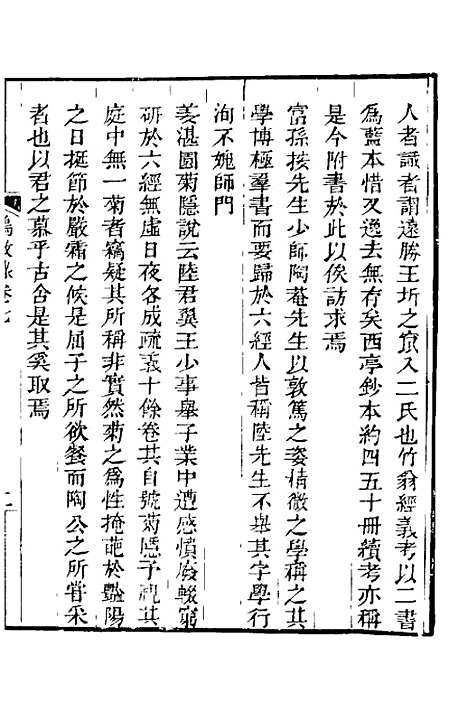 人者識者謂遠勝王圻之竄入二氏也竹翁經義考以二書
爲藍本惜又逸去無存矣西亭鈔本約四五十冊續考亦稱
是今附書於此以俟訪求焉
富孫按先生少師陶菴先生以敦篤之姿精微之學稱之其
學博極羣書而要歸於六經人皆稱陸先生不舉其字學行
洵不媿師門
姜湛園菊隱說云陸君翼王少事舉子業中遭感憤廢輟窮
研於六經無虛日夜各成疏義十餘卷其自號菊隱予視其
庭中無一菊者竊疑其所稱非實然菊之爲性掩葩於豔陽
之日挺節於嚴霜之候是屈子之所欲餐而陶公之所嘗采
者也以君之慕乎古舍是其奚取焉
鶴徵錄卷七